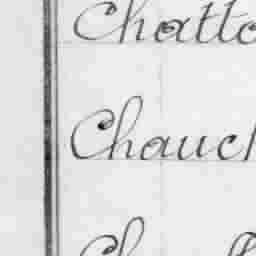 Chatto
Chauch